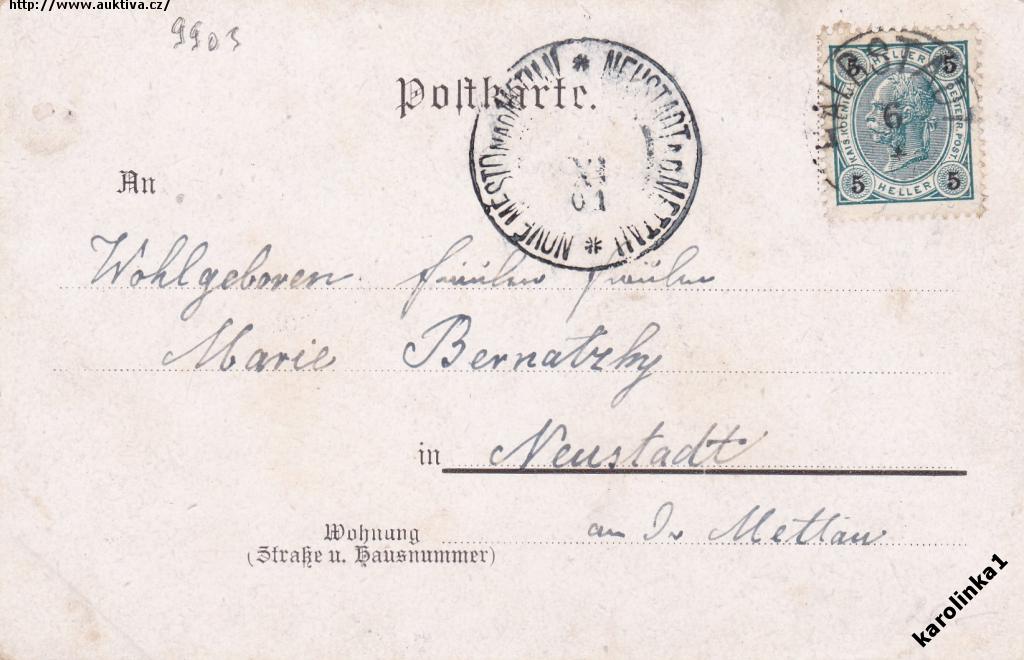 http://www.auktiva.cz/
9903
Postkarte.
NOVÉ MĚSTO NAD METUJÍ * NEUSTADT A.D. METTAU *
XI
01
5 HELLER 5
KAIS. KOENIGL. OESTERR. POST.
5 HELLER 5
6
An
Wohlgeboren Fräulein Fräulein
Marie Bernatzky
in Neustadt
Wohnung an der Mettau
(Straße u. Hausnummer)
karolinka1